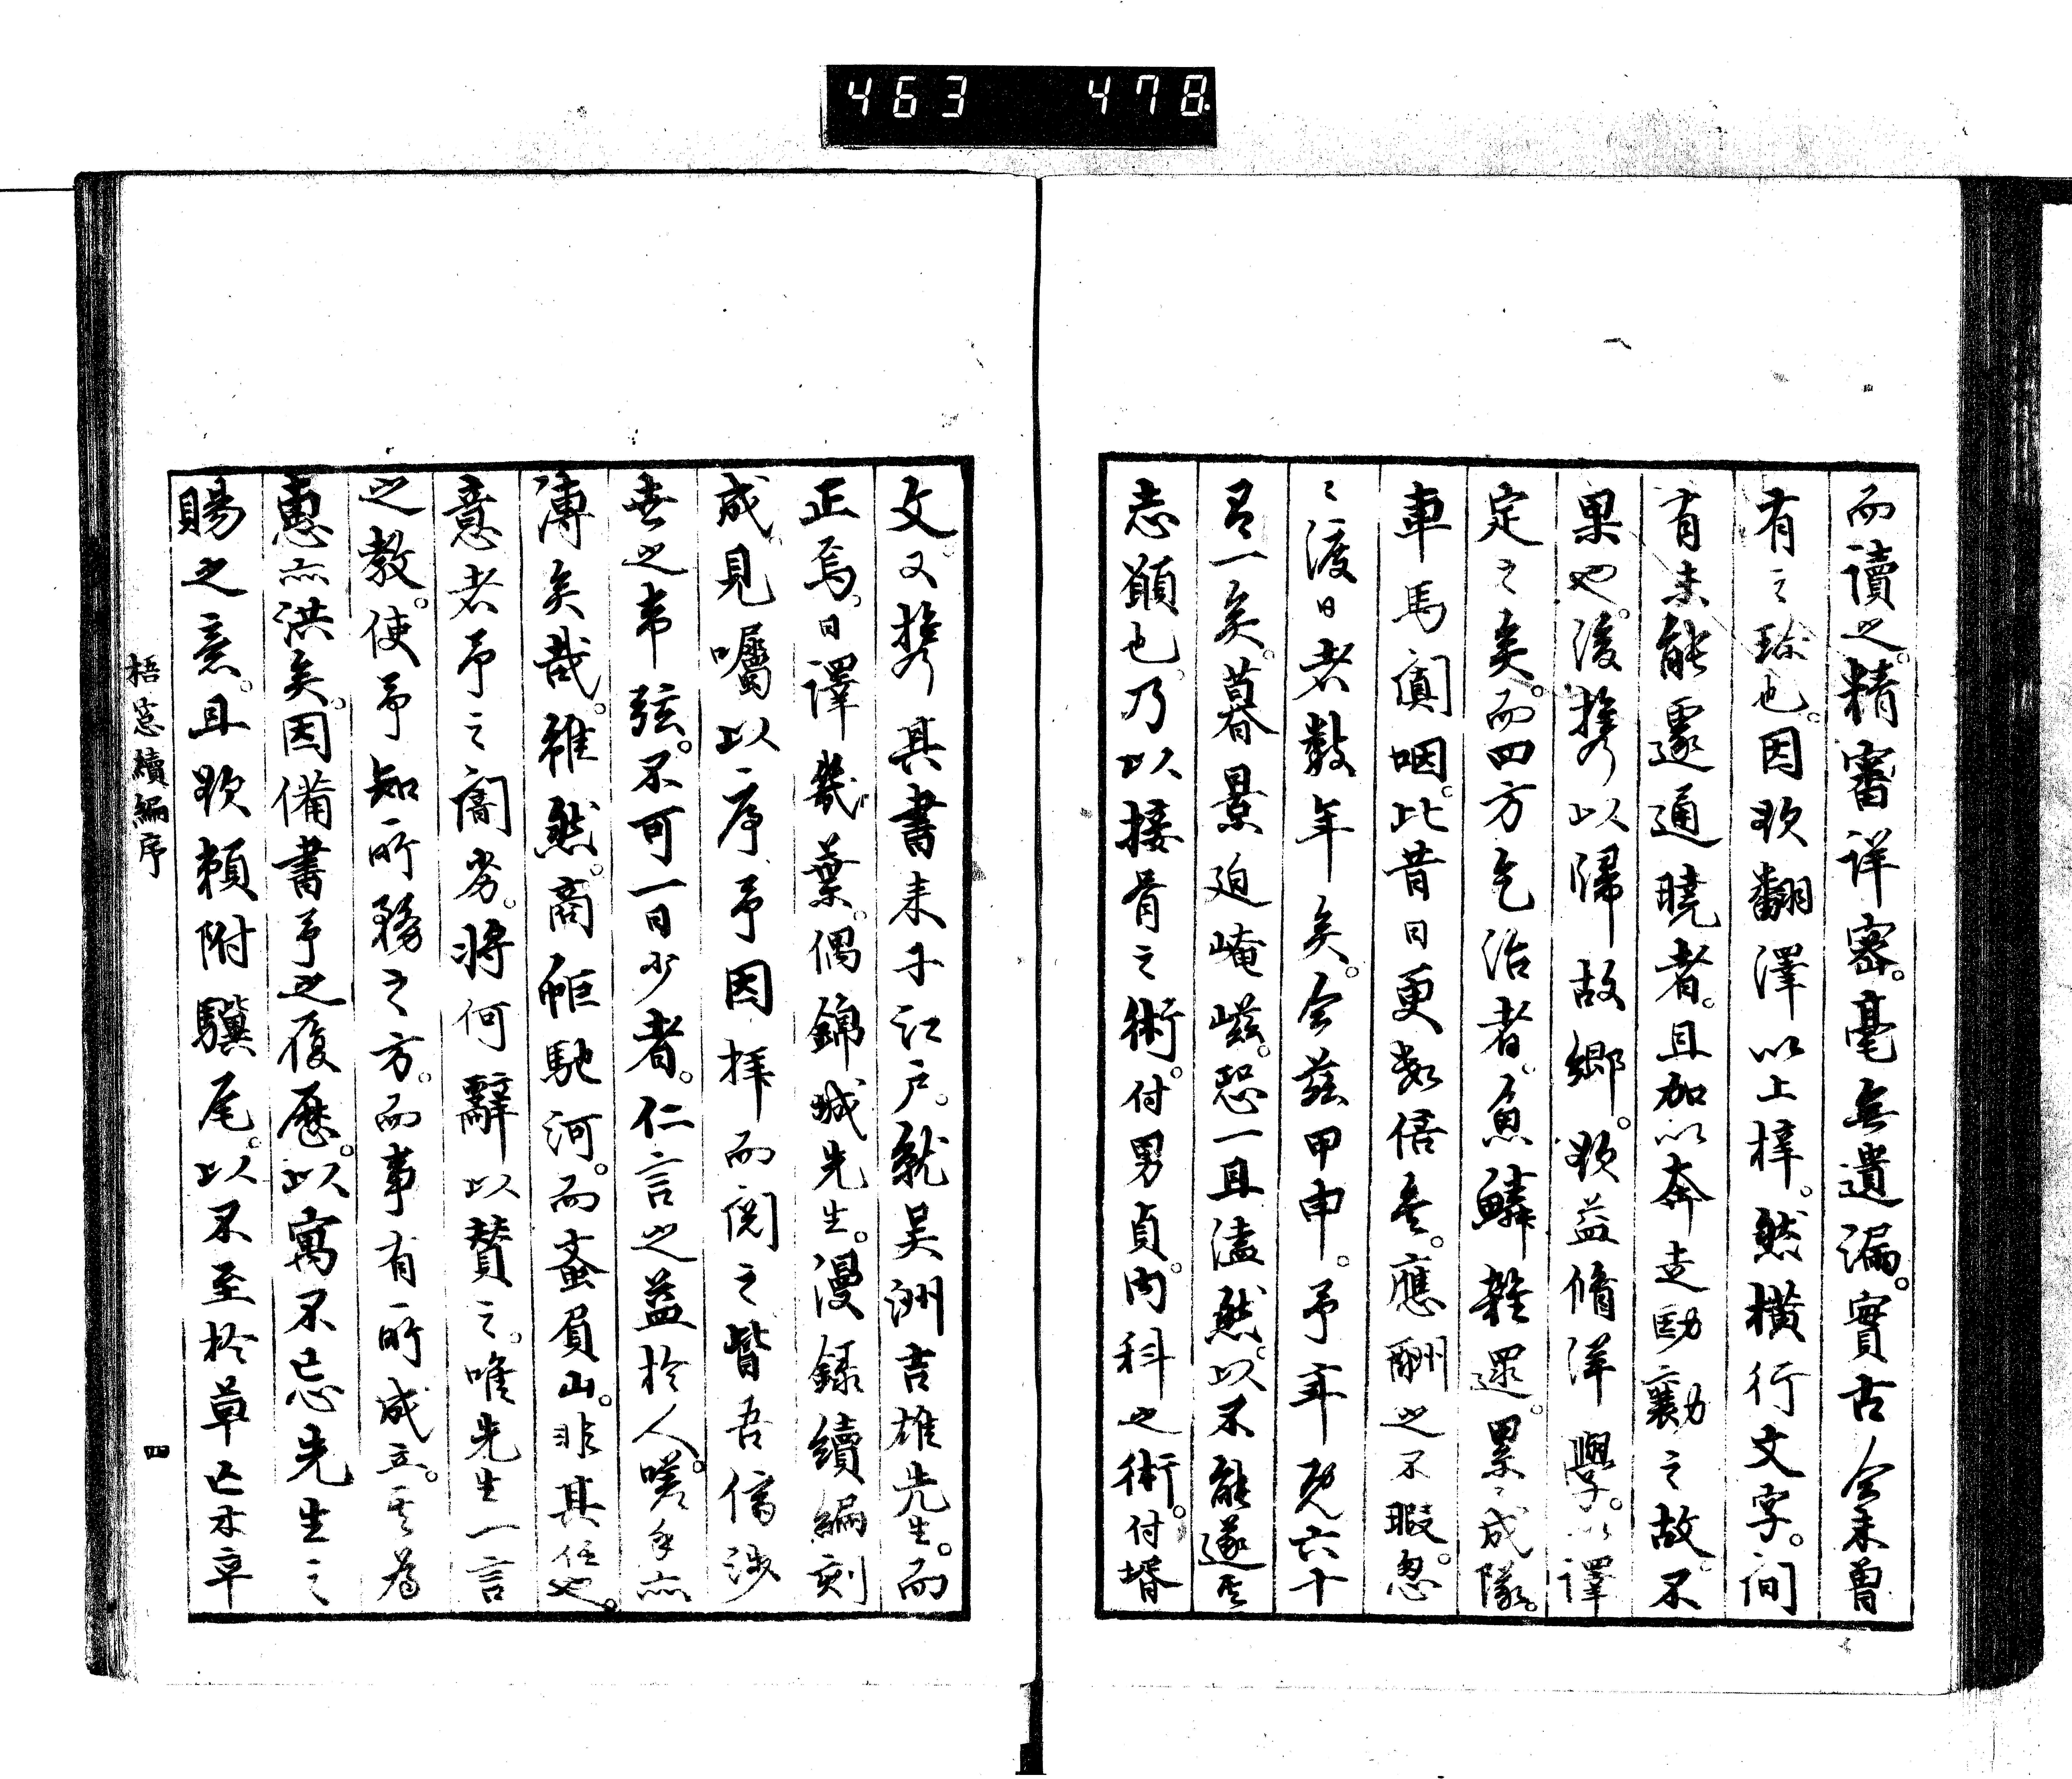 463 478
而讀之。精審詳密。毫無遺漏。實古今未曾
有之珍也。因欲翻澤以上梓。然橫行文字。間
有未能遽通曉者。且加以奔走劻勷之故。不
果也。後携以歸故鄉。欲益脩洋學。以譯
定之矣。而四方乞治者。魚鱗雜遝。累〻成隊。
車馬闐咽。比昔日更数倍矣。應酬之不暇。忽
〻渡日者數年矣。今茲甲申。予年既六十
有一矣。暮景迫崦嵫。恐一旦溘然。以不能遂其
志願也。乃以接骨之術。付男貞。內科之術。付壻
文。又携其書来于江戶。就吴洲吉雄先生。而
正焉。日譯幾葉。偶錦城先生。漫錄續編刻
成。見囑以序。予因拜而閱之。皆吾儕涉
世之韋弦。不可一日少者。仁言之益於人。嗟乎亦
溥矣哉。雖然。商蚷馳河。而蚉負山。非其任也。
意者予之闇劣。將何辭以贊之。唯先生一言
之教。使予知所務之方。而事有所成立。其為
惠亦洪矣。因備書予之履歷。以寓不忘先生之
賜之意。且欲賴附驥尾。以不至於草亡木卒
梧窓續編序
四